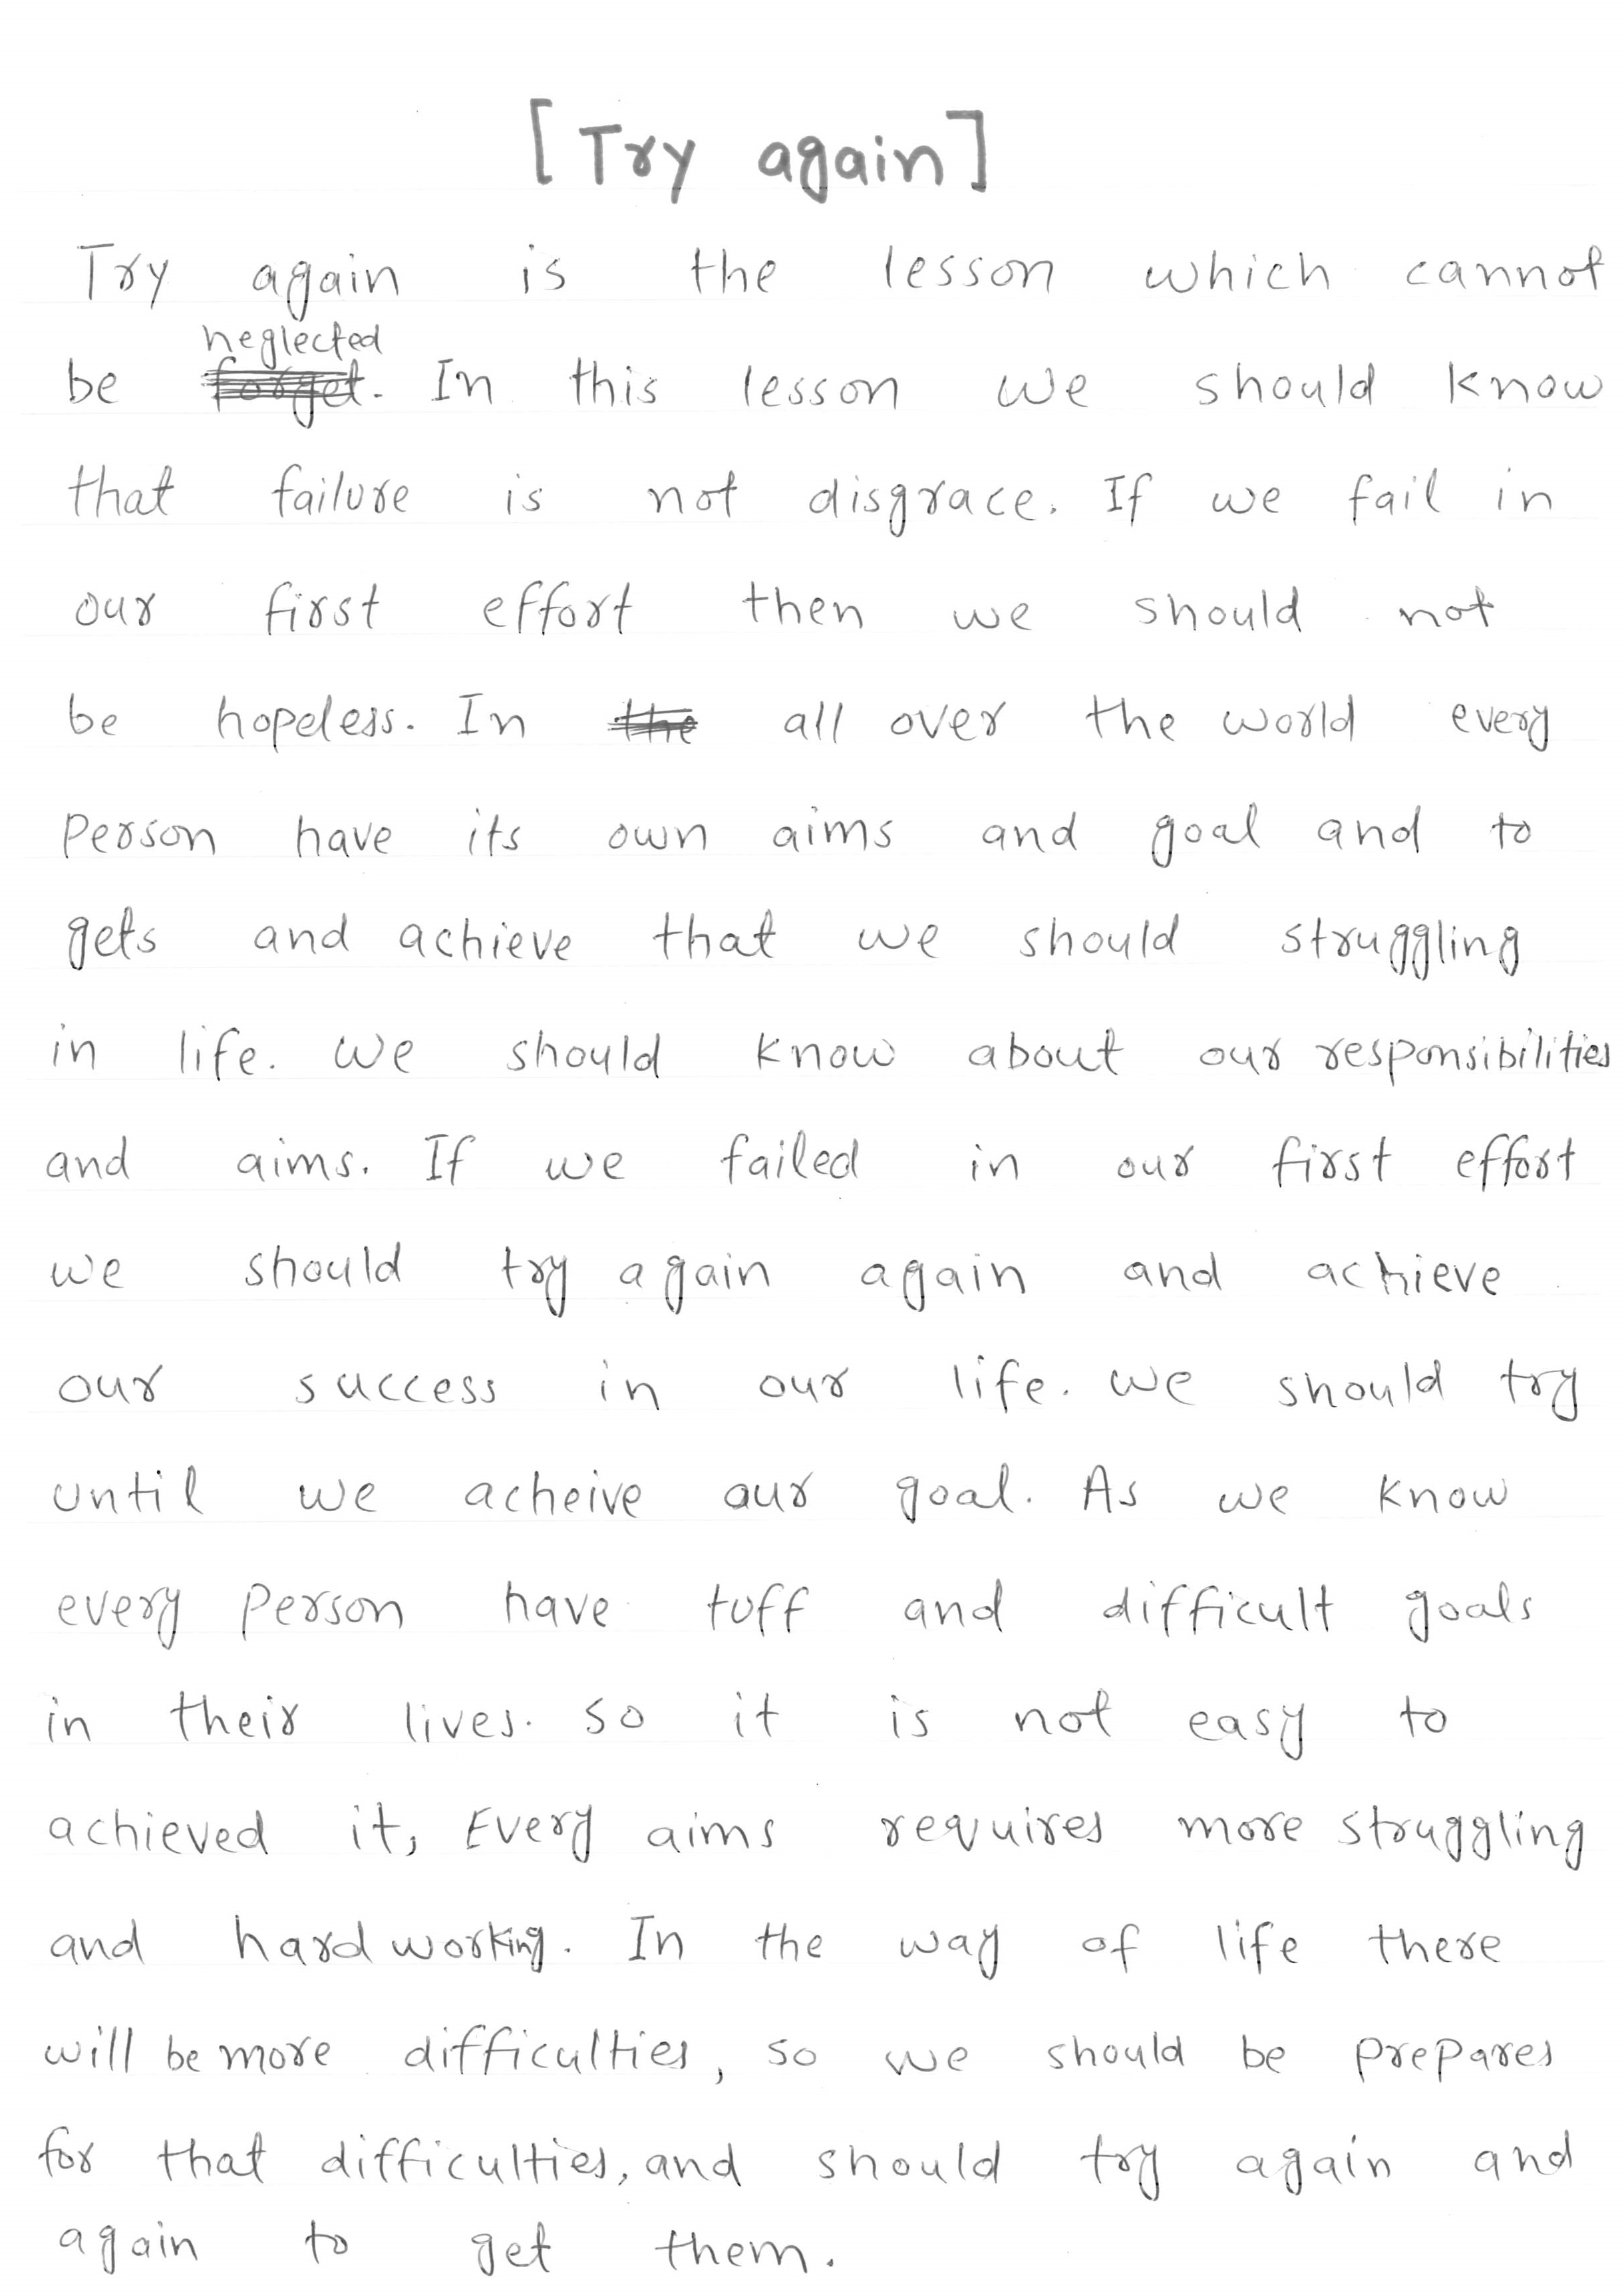 [Try again]
Try again is the lesson which cannot
neglected
be forget. In this lesson we should know
that failure is not disgrace. If we fail in
our first effort then we should not
be hopeless. In the all over the world every
person have its own aims and goal and to
gets and achieve that we should struggling
in life. We should know about our responsibilities
and aims. If we failed in our first effort
we should try again again and achieve
our success in our life. We should try
until we acheive our goal. As we know
every person have tuff and difficult goals
in their lives. So it is not easy to
achieved it, Every aims requires more struggling
and hard working. In the way of life there
will be more difficulties, so we should be prepares
for that difficulties, and should try again and
again to get them.